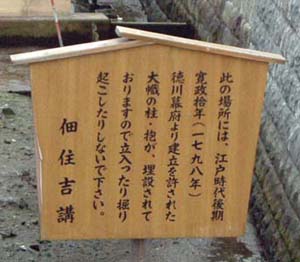 此の場所には、江戸時代後期
寛政拾年（一七九八年）
徳川幕府より建立を許された
大幟の柱・抱が、埋設されて
おりますので立入ったり掘り
起こしたりしないで下さい。
佃住吉講